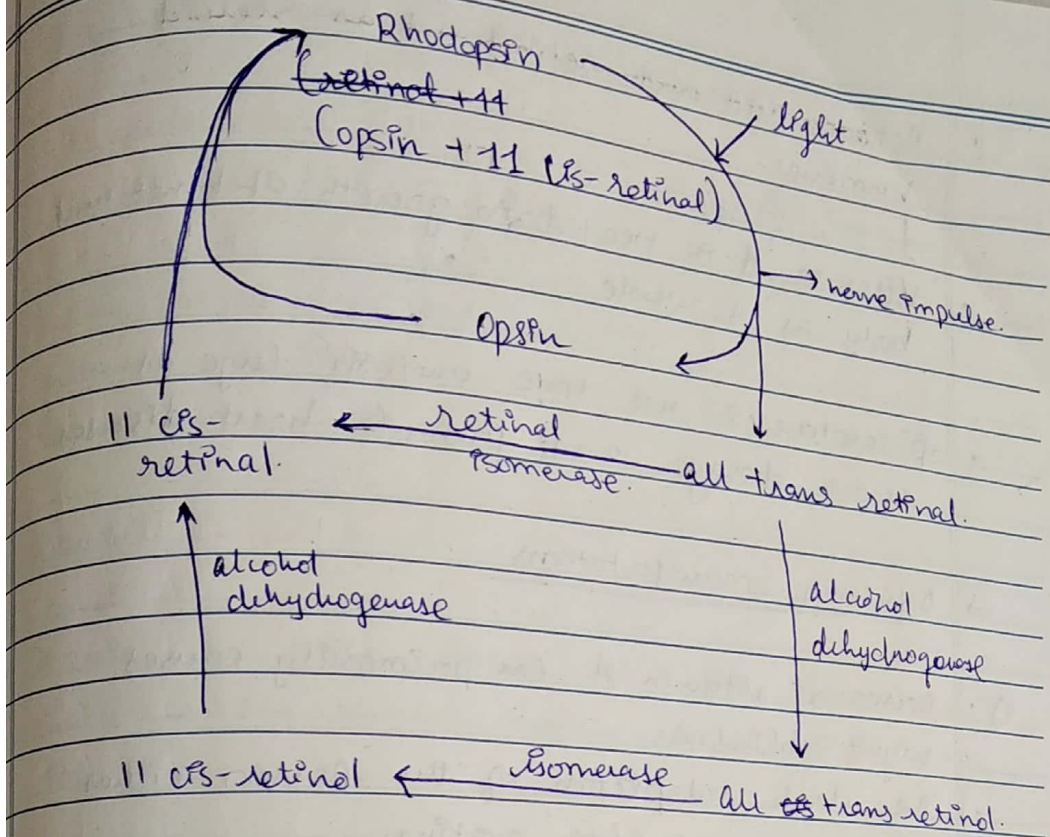 Rhodopsin
(retinol + 11
(opsin + 11 cis-retinal)
light
nerve impulse.
Opsin
11 cis-
retinal.
retinal
isomerase.
all trans retinal.
alcohol
dehydrogenase
alcohol
dehydrogenase
11 cis-retinol
isomerase
all cis trans retinol.